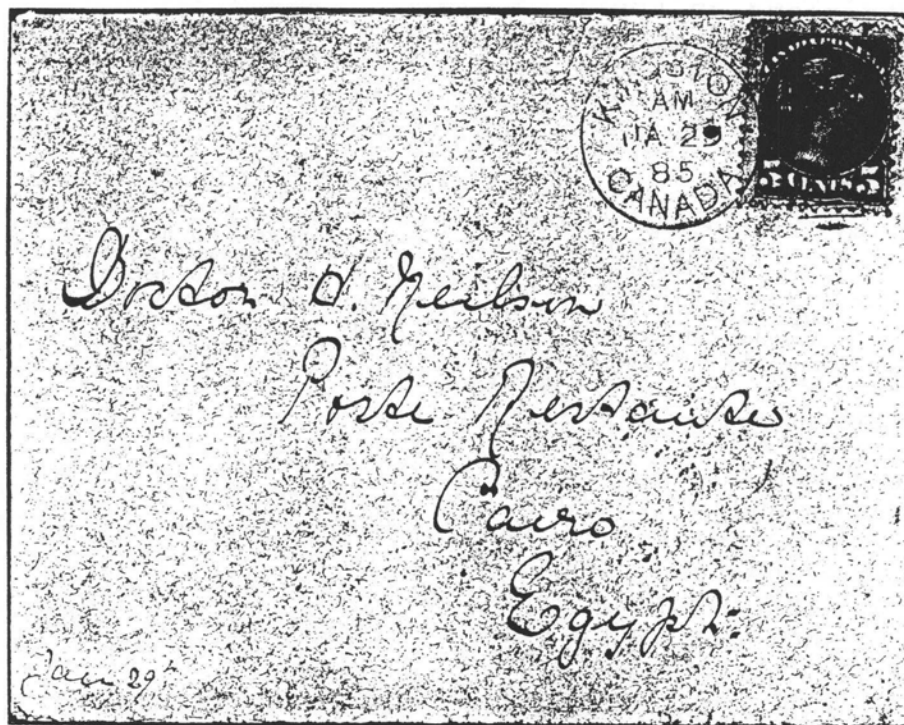 KINGSTON
AM
JA 29
85
CANADA
5 CENTS 5
Doctor H. Neilson
Poste Restante
Cairo
Egypt.
Jan 29